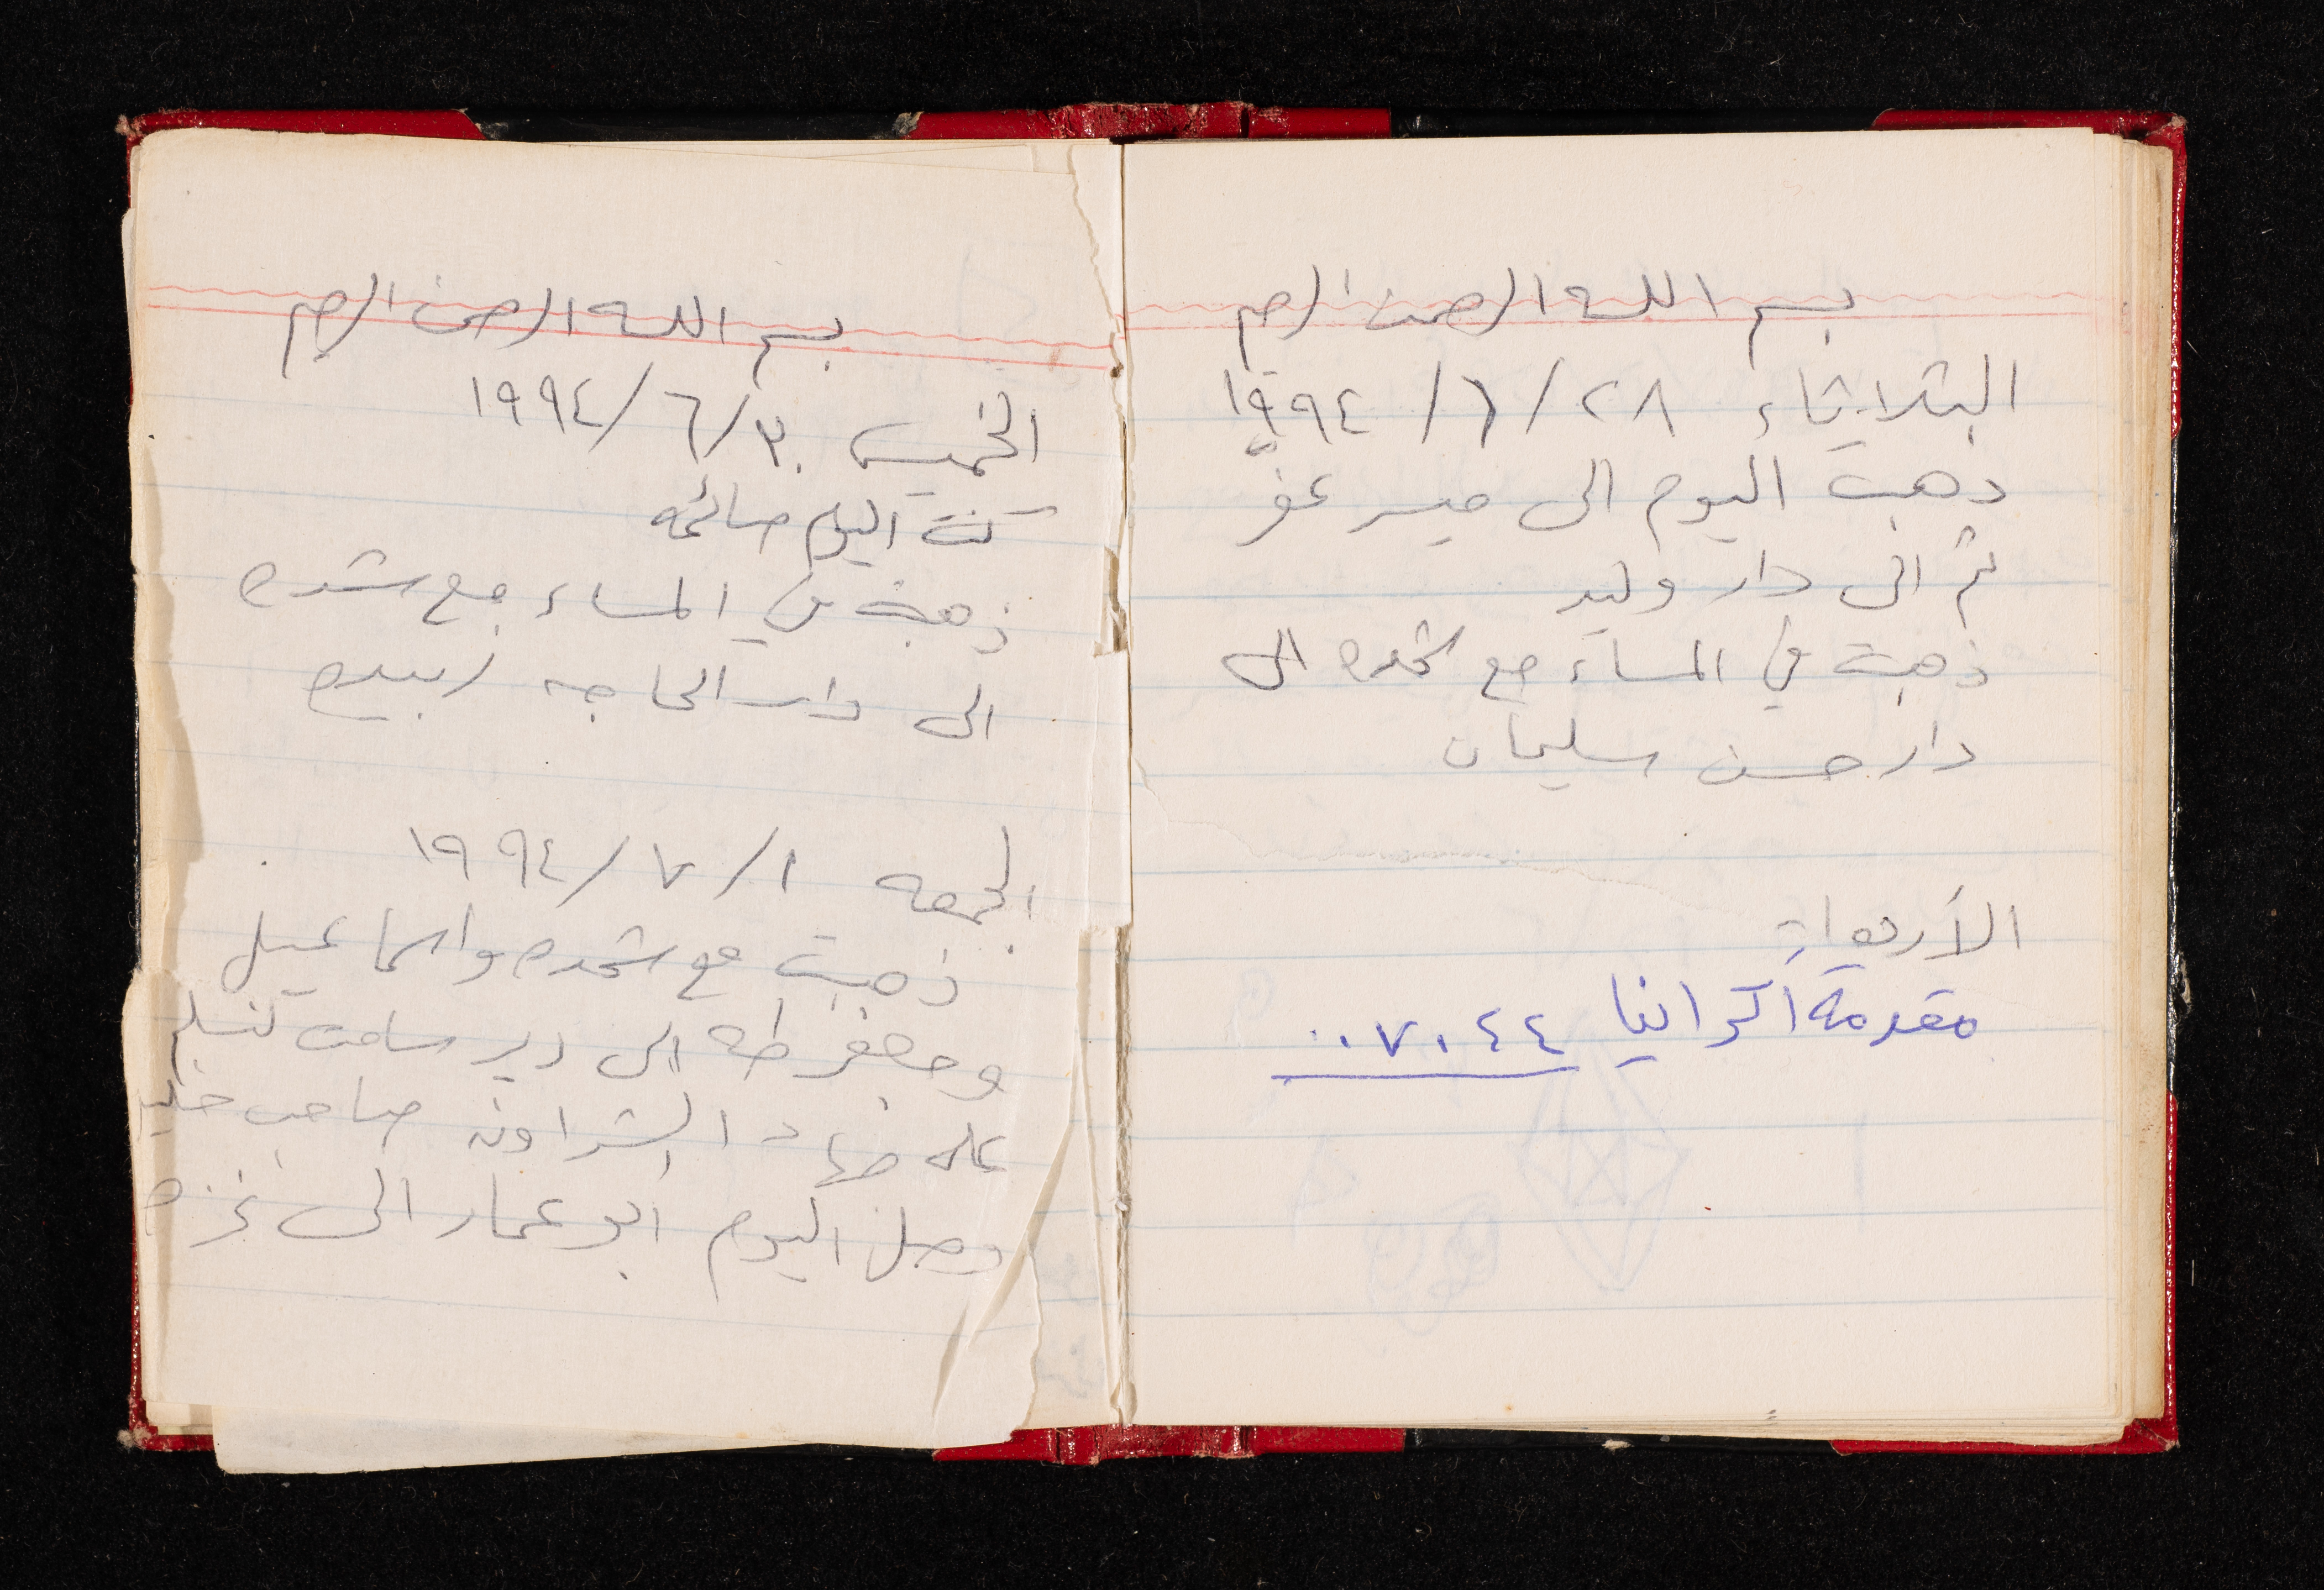 بسم الله الرحمن الرحيم
الثلاثاء ٢٨/٦/١٩٩٤
دهبت اليوم الى ميسر عفر
ثم الى دار وليد
ذهبت في المساء مع شحده الى
دار حسن سليمان
الأربعاء
مقدمة أكرانيا ٠٠٧٠٤٤
بسم الله الرحمن الرحيم
الخميس ٣٠/٦/١٩٩٤
كنت اليوم صائمه
ذهبت في المساء مع شحده
الى دار الحاجه زبيده
الجمعه ١/٧/١٩٩٤
ذهبت مع شحده واسماعيل
وجعفر طه الى دير سامت لنسلم
على جهاد الشراونه صاحب
وصل اليوم ابو عمار الى غزه